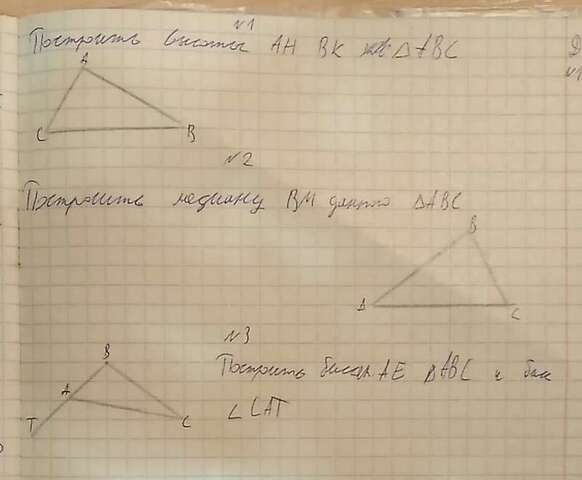 N1
Построить высоты AH BK ΔABC
A
C
B
N2
Построить медиану BM данного ΔABC
B
A
C
N3
Построить AE ΔABC и бис
∠CAT
B
A
C
T
N1